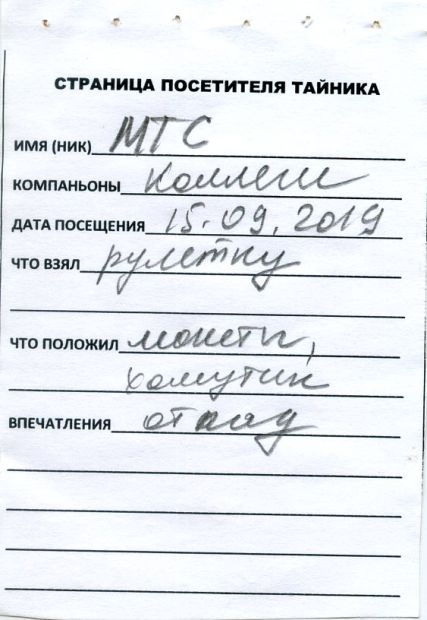 СТРАНИЦА ПОСЕТИТЕЛЯ ТАЙНИКА
ИМЯ (НИК) МТС
КОМПАНЬОНЫ Коллеги
ДАТА ПОСЕЩЕНИЯ 15.09.2019
ЧТО ВЗЯЛ рулетку
ЧТО ПОЛОЖИЛ монеты,
хомутик
ВПЕЧАТЛЕНИЯ отпад